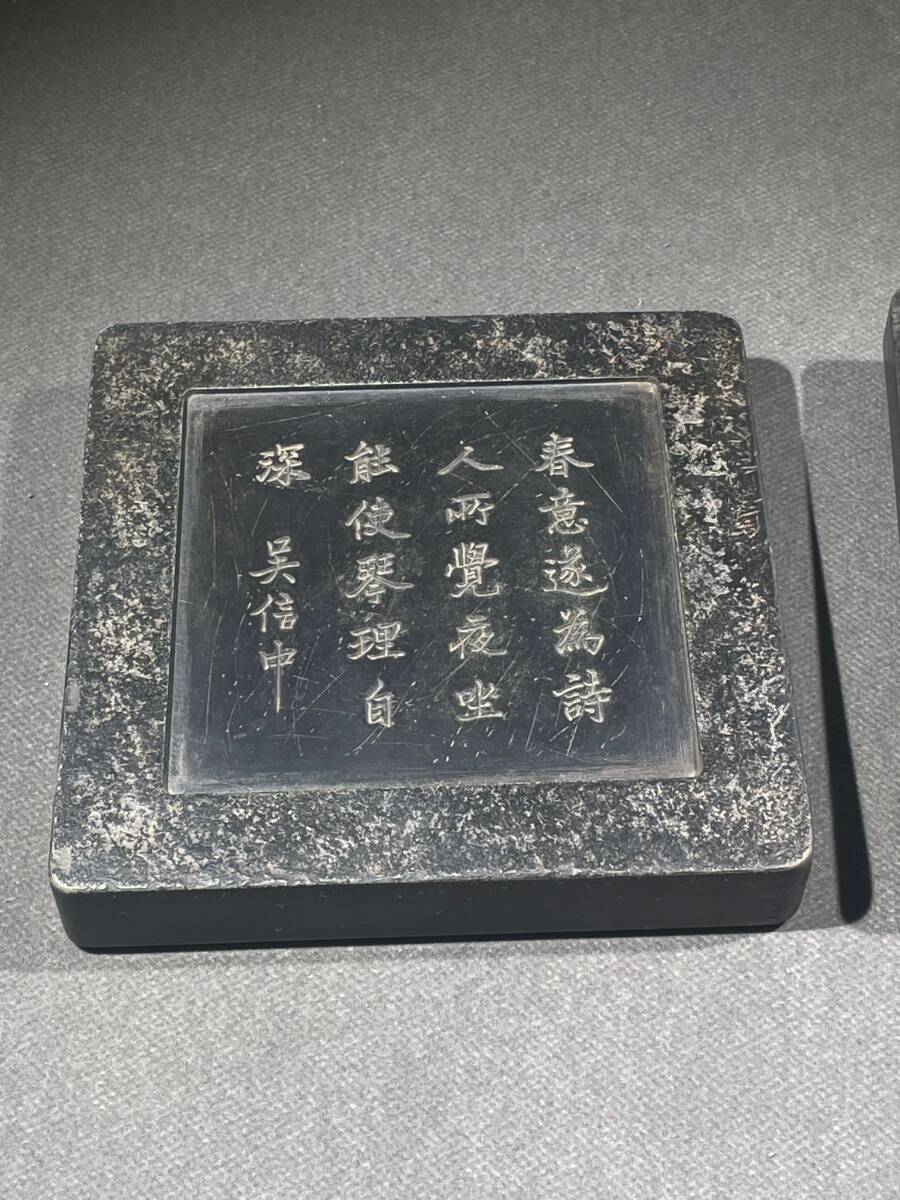 春意遂為詩
人所覺夜坐
能使琴理自
深 吴信中